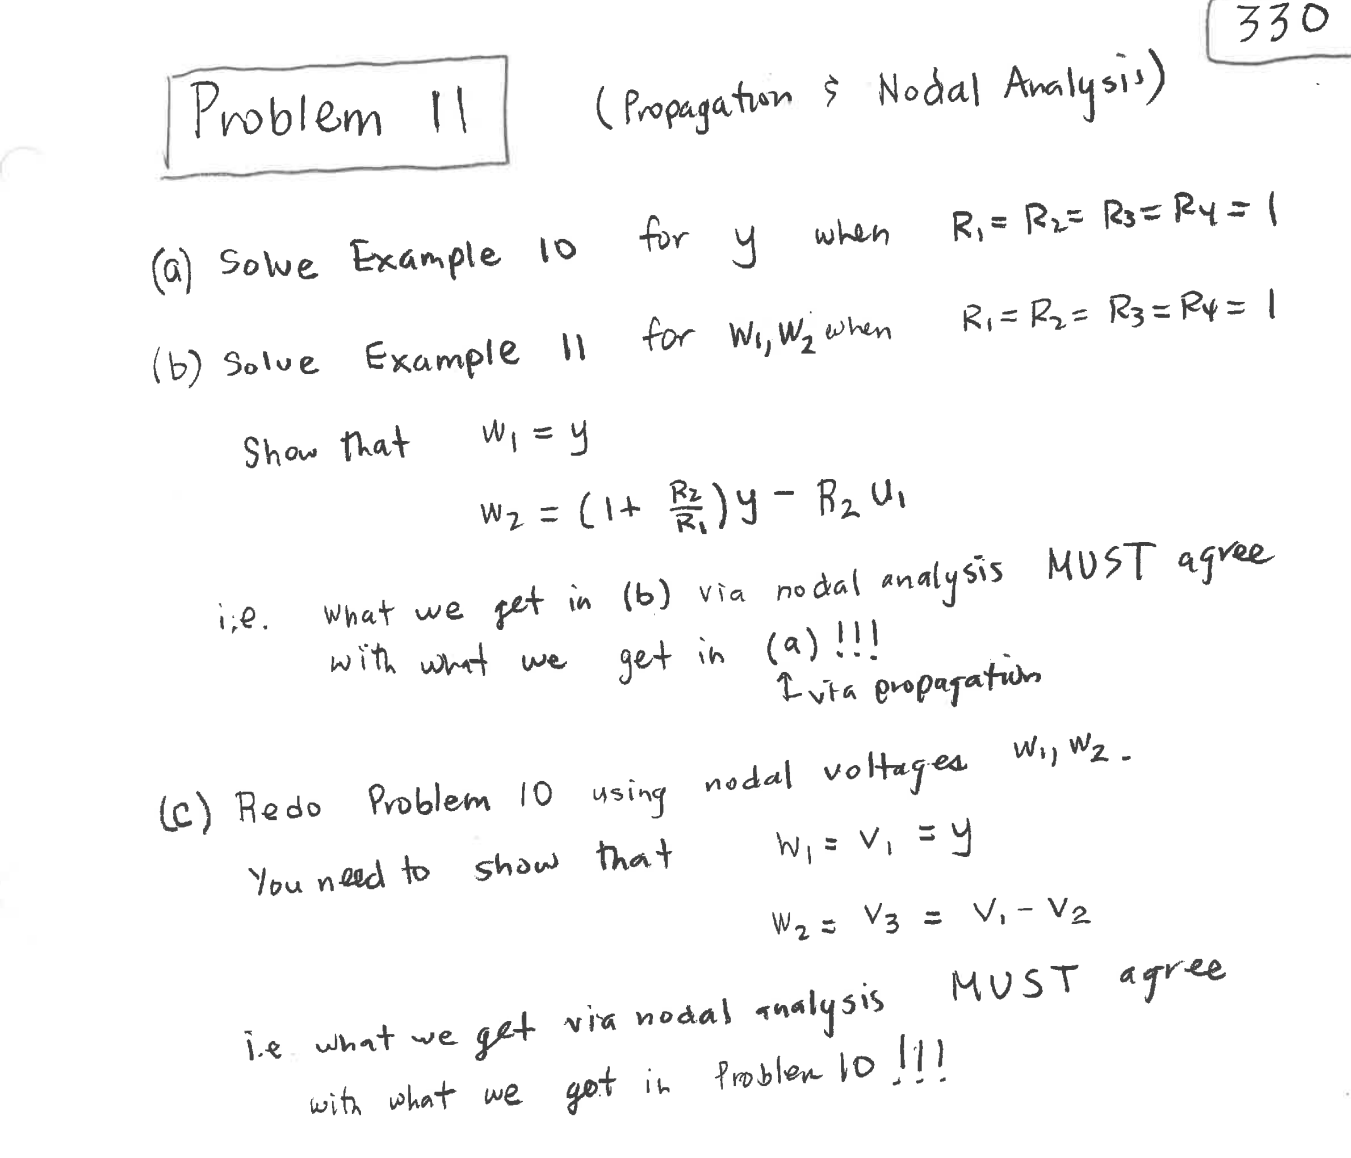 330
Problem 11 (Propagation & Nodal Analysis)
(a) Solve Example 10 for y when R₁ = R₂ = R₃ = R₄ = 1
(b) Solve Example 11 for W₁, W₂ when R₁ = R₂ = R₃ = R₄ = 1
Show that W₁ = y
W₂ = (1 + R₂/R₁) y - R₂ U₁
i.e. what we get in (b) via nodal analysis MUST agree
with what we get in (a) !!!
↑ via propagation
(c) Redo Problem 10 using nodal voltages W₁, W₂.
You need to show that W₁ = V₁ = y
W₂ = V₃ = V₁ - V₂
i.e what we get via nodal analysis MUST agree
with what we got in Problem 10 !!!